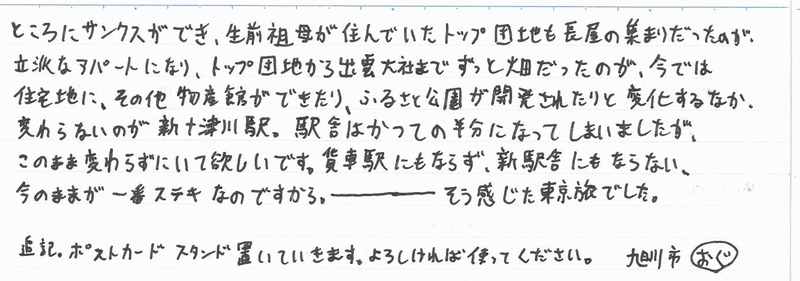 ところにサンクスができ、生前祖母が住んでいたトップ団地も長屋の集まりだったのが、
立派なアパートになり、トップ団地から出雲大社までずっと畑だったのが、今では
住宅地に、その他物産館ができたり、ふるさと公園が開発されたりと変化するなか、
変わらないのが新十津川駅。駅舎はかつての半分になってしまいましたが、
このまま変わらずにいて欲しいです。貨車駅にもならず、新駅舎にもならない、
今のままが一番ステキなのですから。――――そう感じた東京旅でした。
追記。ポストカードスタンド置いていきます。よろしければ使ってください。 旭川市 おぐ